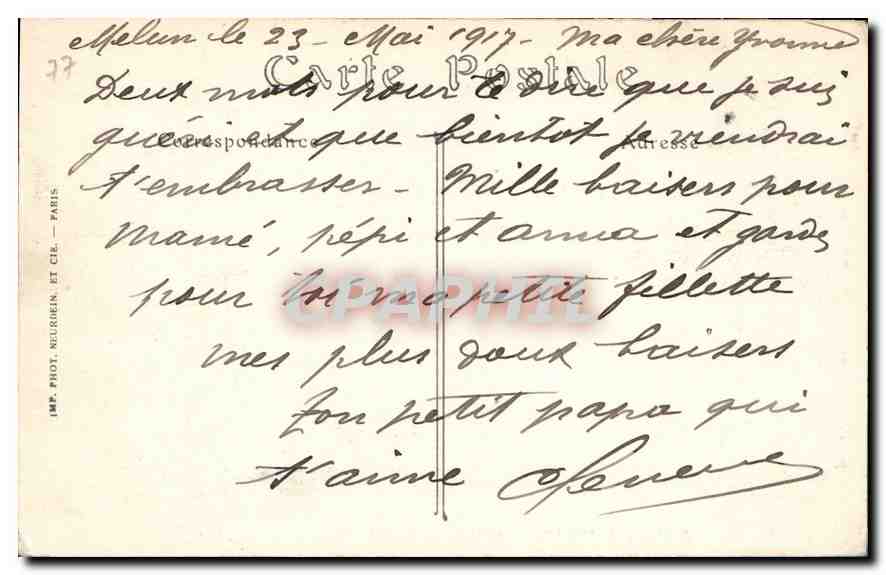 Melun le 23 - Mai 1917 - Ma chère Yvonne
77
Carte Postale
Deux mots pour te dire que je suis
guéri et que bientot je viendrai
Correspondance
Adresse
t'embrasser - Mille baisers pour
Mamé, pépi et anna et garde
pour toi ma petite fillette
CPAPHIL
mes plus doux baisers
Ton petit papa qui
t'aime
IMP. PHOT. NEURDEIN. ET CIE. — PARIS